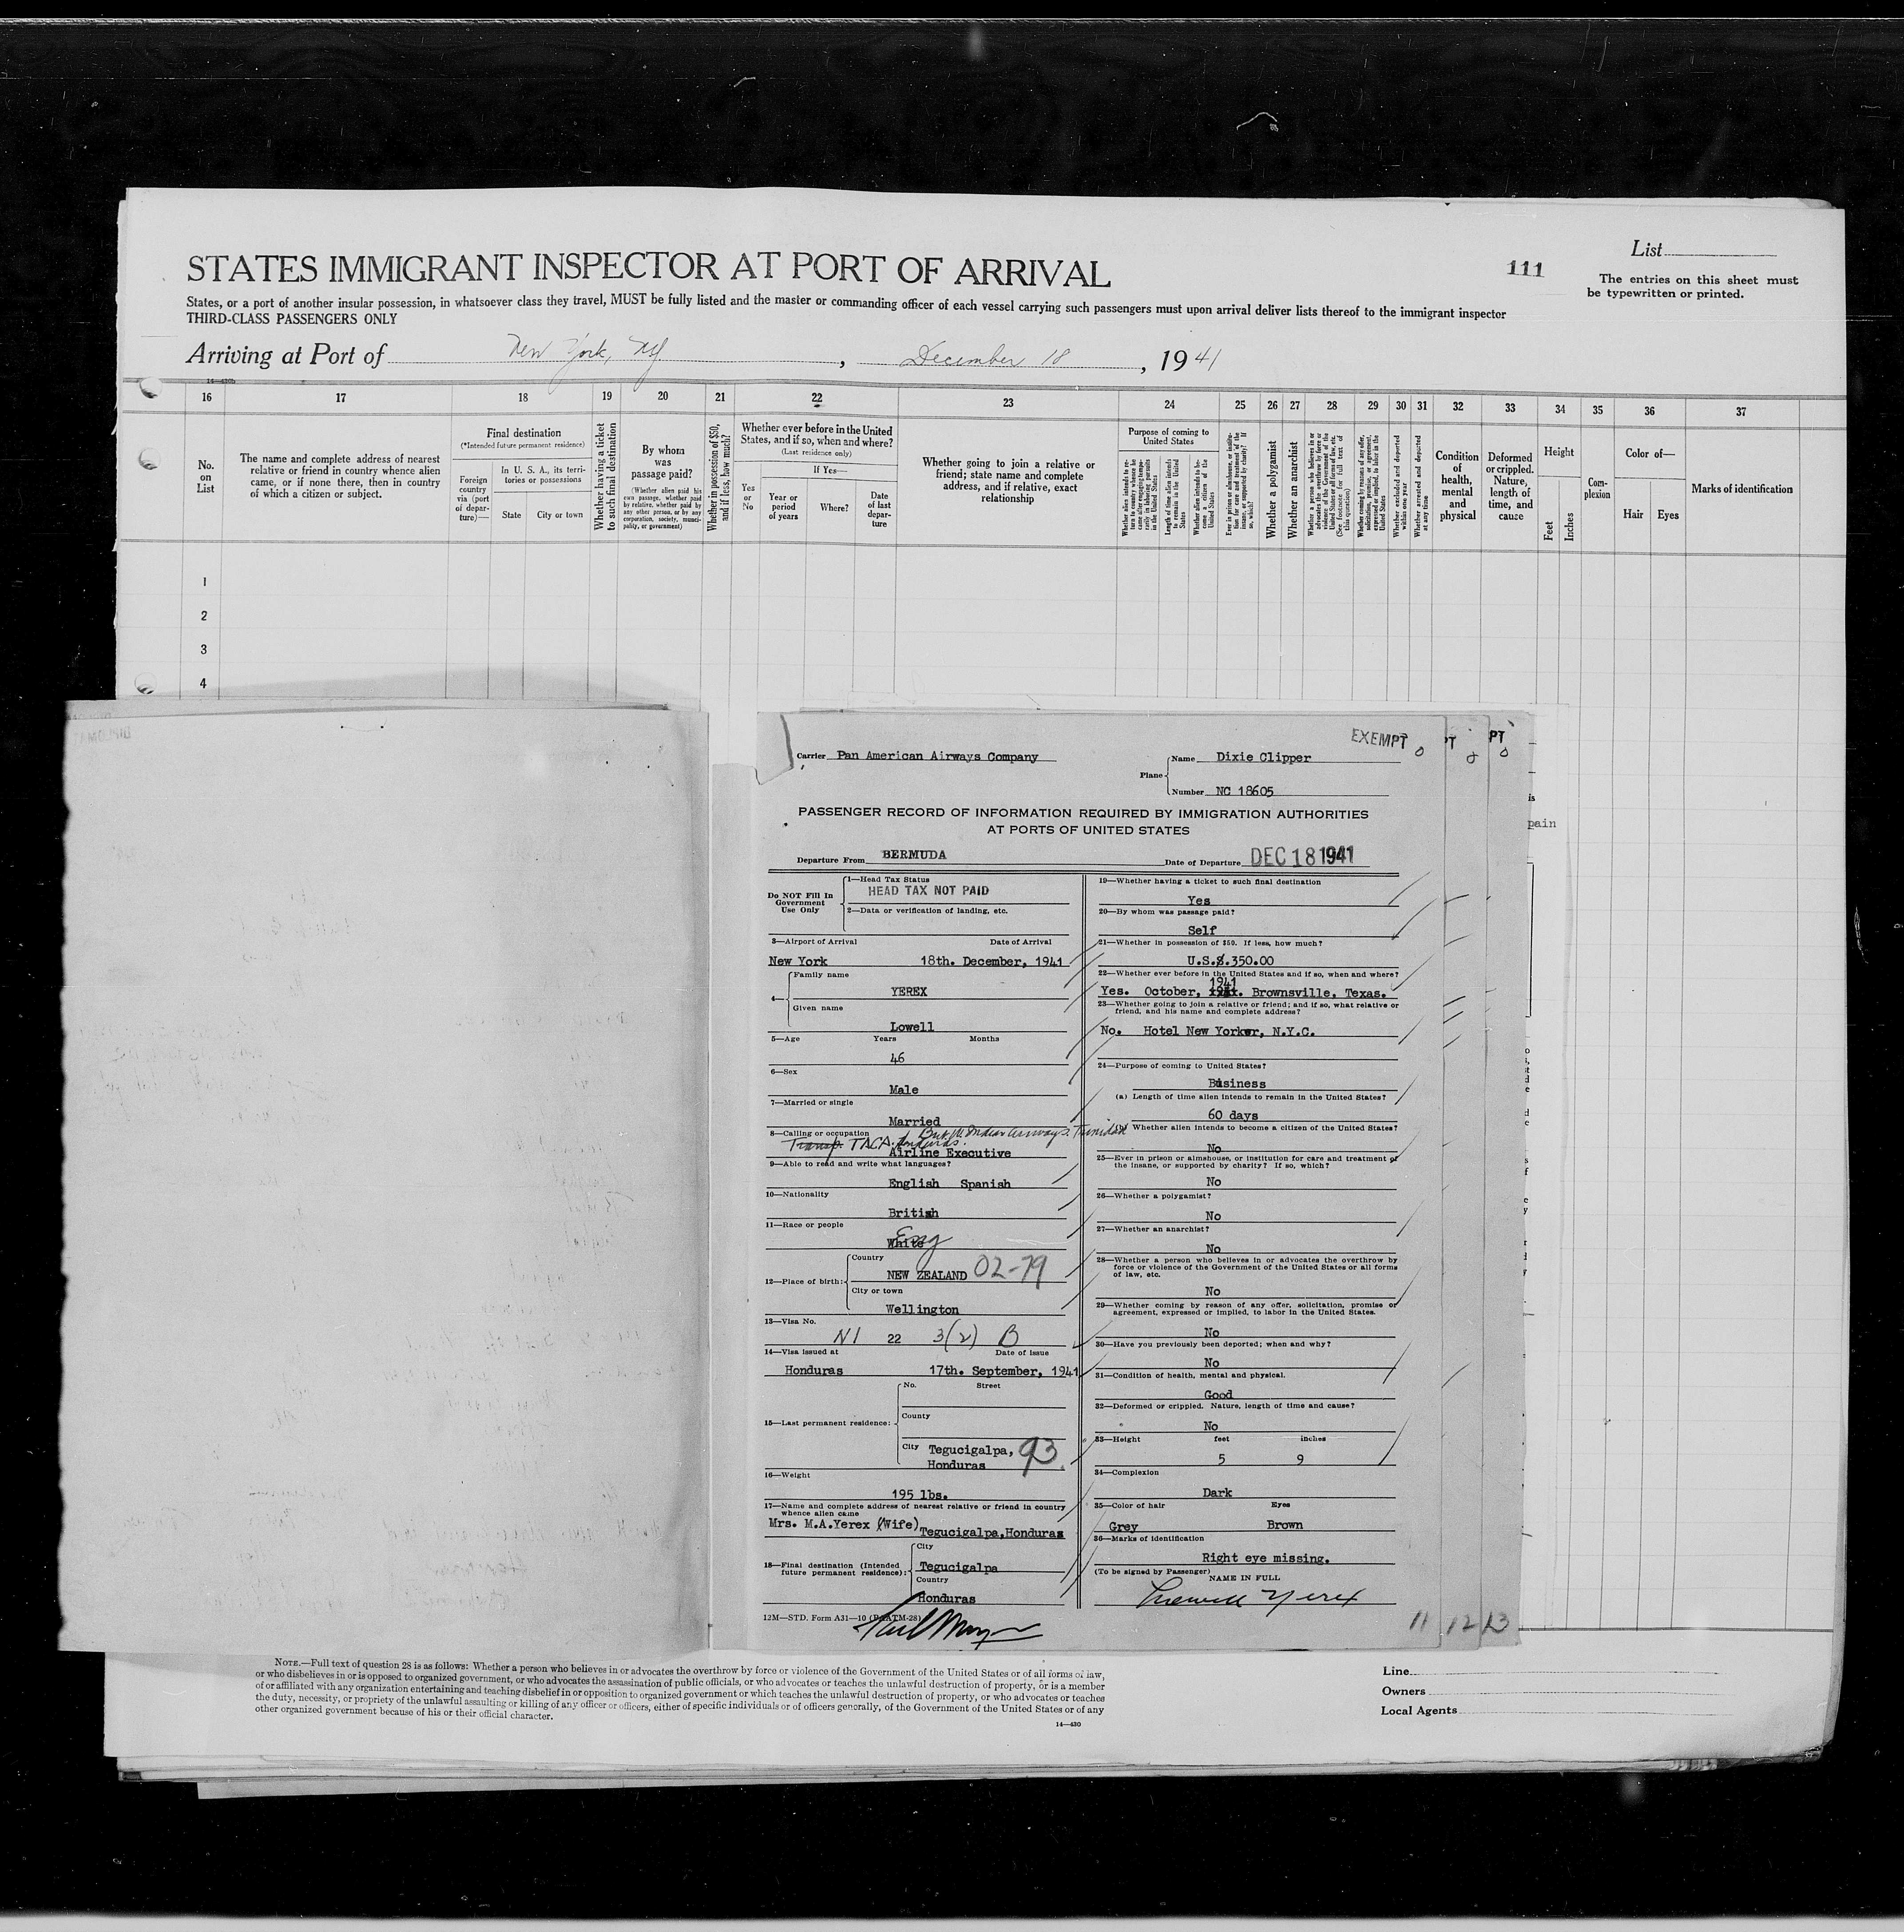 List
111
The entries on this sheet must
be typewritten or printed.
STATES IMMIGRANT INSPECTOR AT PORT OF ARRIVAL
States, or a port of another insular possession, in whatsoever class they travel, MUST be fully listed and the master or commanding officer of each vessel carrying such passengers must upon arrival deliver lists thereof to the immigrant inspector
THIRD-CLASS PASSENGERS ONLY
Arriving at Port of New York, NY, December 18, 1941
14—430b
16 17 18 19 20 21 22 23 24 25 26 27 28 29 30 31 32 33 34 35 36 37
No.
on
List
The name and complete address of nearest
relative or friend in country whence alien
came, or if none there, then in country
of which a citizen or subject.
Final destination
(*Intended future permanent residence)
Foreign
country
via (port
of depar-
ture)—
In U. S. A., its terri-
tories or possessions
State
City or town
Whether having a ticket
to such final destination
By whom
was
passage paid?
(Whether alien paid his
own passage, whether paid
by relative, whether paid by
any other person, or by any
corporation, society, munici-
pality, or government)
Whether in possession of $50,
and if less, how much?
Whether ever before in the United
States, and if so, when and where?
(Last residence only)
Yes
or
No
If Yes—
Year or
period
of years
Where?
Date
of last
depar-
ture
Whether going to join a relative or
friend; state name and complete
address, and if relative, exact
relationship
Purpose of coming to
United States
Length of time alien intends
to remain in the United
States
Whether alien intends to be-
come a citizen of the
United States
Whether a polygamist
Whether an anarchist
Whether excluded and deported
within one year
Whether arrested and deported
at any time
Condition
of
health,
mental
and
physical
Deformed
or crippled.
Nature,
length of
time, and
cause
Height
Feet
Inches
Com-
plexion
Color of—
Hair
Eyes
Marks of identification
1
2
3
4
EXEMPT
PT
PT
Carrier Pan American Airways Company
Plane
Name Dixie Clipper
Number NC 18605
PASSENGER RECORD OF INFORMATION REQUIRED BY IMMIGRATION AUTHORITIES
AT PORTS OF UNITED STATES
Departure From BERMUDA
Date of Departure DEC 18 1941
Do NOT Fill In
Government
Use Only
1—Head Tax Status
HEAD TAX NOT PAID
2—Data or verification of landing, etc.
3—Airport of Arrival Date of Arrival
New York 18th. December, 1941
4—
Family name
YEREX
Given name
Lowell
5—Age Years Months
46
6—Sex
Male
7—Married or single
Married
8—Calling or occupation
Transp. TACA. Honduras. Brit. W. Indian Airways. Trinidad
Airline Executive
9—Able to read and write what languages?
English Spanish
10—Nationality
British
11—Race or people
White Eng
12—Place of birth:
Country
NEW ZEALAND 02-79
City or town
Wellington
13—Visa No.
NI 22 3(2) B
14—Visa issued at Date of Issue
Honduras 17th. September, 1941
15—Last permanent residence:
No. Street
County
City Tegucigalpa, 93.
Honduras
16—Weight
195 lbs.
17—Name and complete address of nearest relative or friend in country
whence alien came
Mrs. M.A.Yerex (Wife) Tegucigalpa,Honduras
18—Final destination (Intended
future permanent residence):
City
Tegucigalpa
Country
Honduras
12M—STD. Form A31—10
19—Whether having a ticket to such final destination
Yes
20—By whom was passage paid?
Self
21—Whether in possession of $50. If less, how much?
U.S.$.350.00
22—Whether ever before in the United States and if so, when and where?
1941
Yes. October, 1941. Brownsville, Texas.
23—Whether going to join a relative or friend; and if so, what relative or
friend, and his name and complete address?
No. Hotel New Yorker, N.Y.C.
24—Purpose of coming to United States?
Business
(a) Length of time alien intends to remain in the United States?
60 days
(b) Whether alien intends to become a citizen of the United States?
No
25—Ever in prison or almshouse, or institution for care and treatment of
the insane, or supported by charity? If so, which?
No
26—Whether a polygamist?
No
27—Whether an anarchist?
No
28—Whether a person who believes in or advocates the overthrow by
force or violence of the Government of the United States or all forms
of law, etc.
No
29—Whether coming by reason of any offer, solicitation, promise or
agreement, expressed or implied, to labor in the United States.
No
30—Have you previously been deported; when and why?
No
31—Condition of health, mental and physical.
Good
32—Deformed or crippled. Nature, length of time and cause?
No
33—Height feet inches
5 9
34—Complexion
Dark
35—Color of hair Eyes
Grey Brown
36—Marks of identification
Right eye missing.
(To be signed by Passenger)
NAME IN FULL
Lowell Yerex
11 12 13
pain
NOTE.—Full text of question 28 is as follows: Whether a person who believes in or advocates the overthrow by force or violence of the Government of the United States or of all forms of law,
or who disbelieves in or is opposed to organized government, or who advocates the assassination of public officials, or who advocates or teaches the unlawful destruction of property, or is a member
of or affiliated with any organization entertaining and teaching disbelief in or opposition to organized government or which teaches the unlawful destruction of property, or who advocates or teaches
the duty, necessity, or propriety of the unlawful assaulting or killing of any officer or officers, either of specific individuals or of officers generally, of the Government of the United States or of any
other organized government because of his or their official character.
14—430
Line
Owners
Local Agents